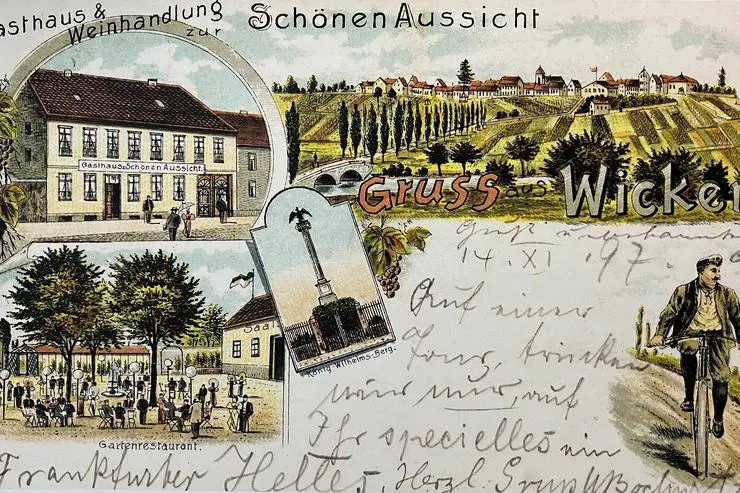 asthaus &
Weinhandlung
zur
Schönen Aussicht
Gasthaus z. Schönen Aussicht.
Gruss aus Wicker
14. XI. 97.
Auf einer
Tour, trinken
wir nur, auf
Ihr specielles ein
Frankfurter Helles, Herzl. Gruss
König-Wilhelms-Berg.
Saal
Gartenrestaurant.